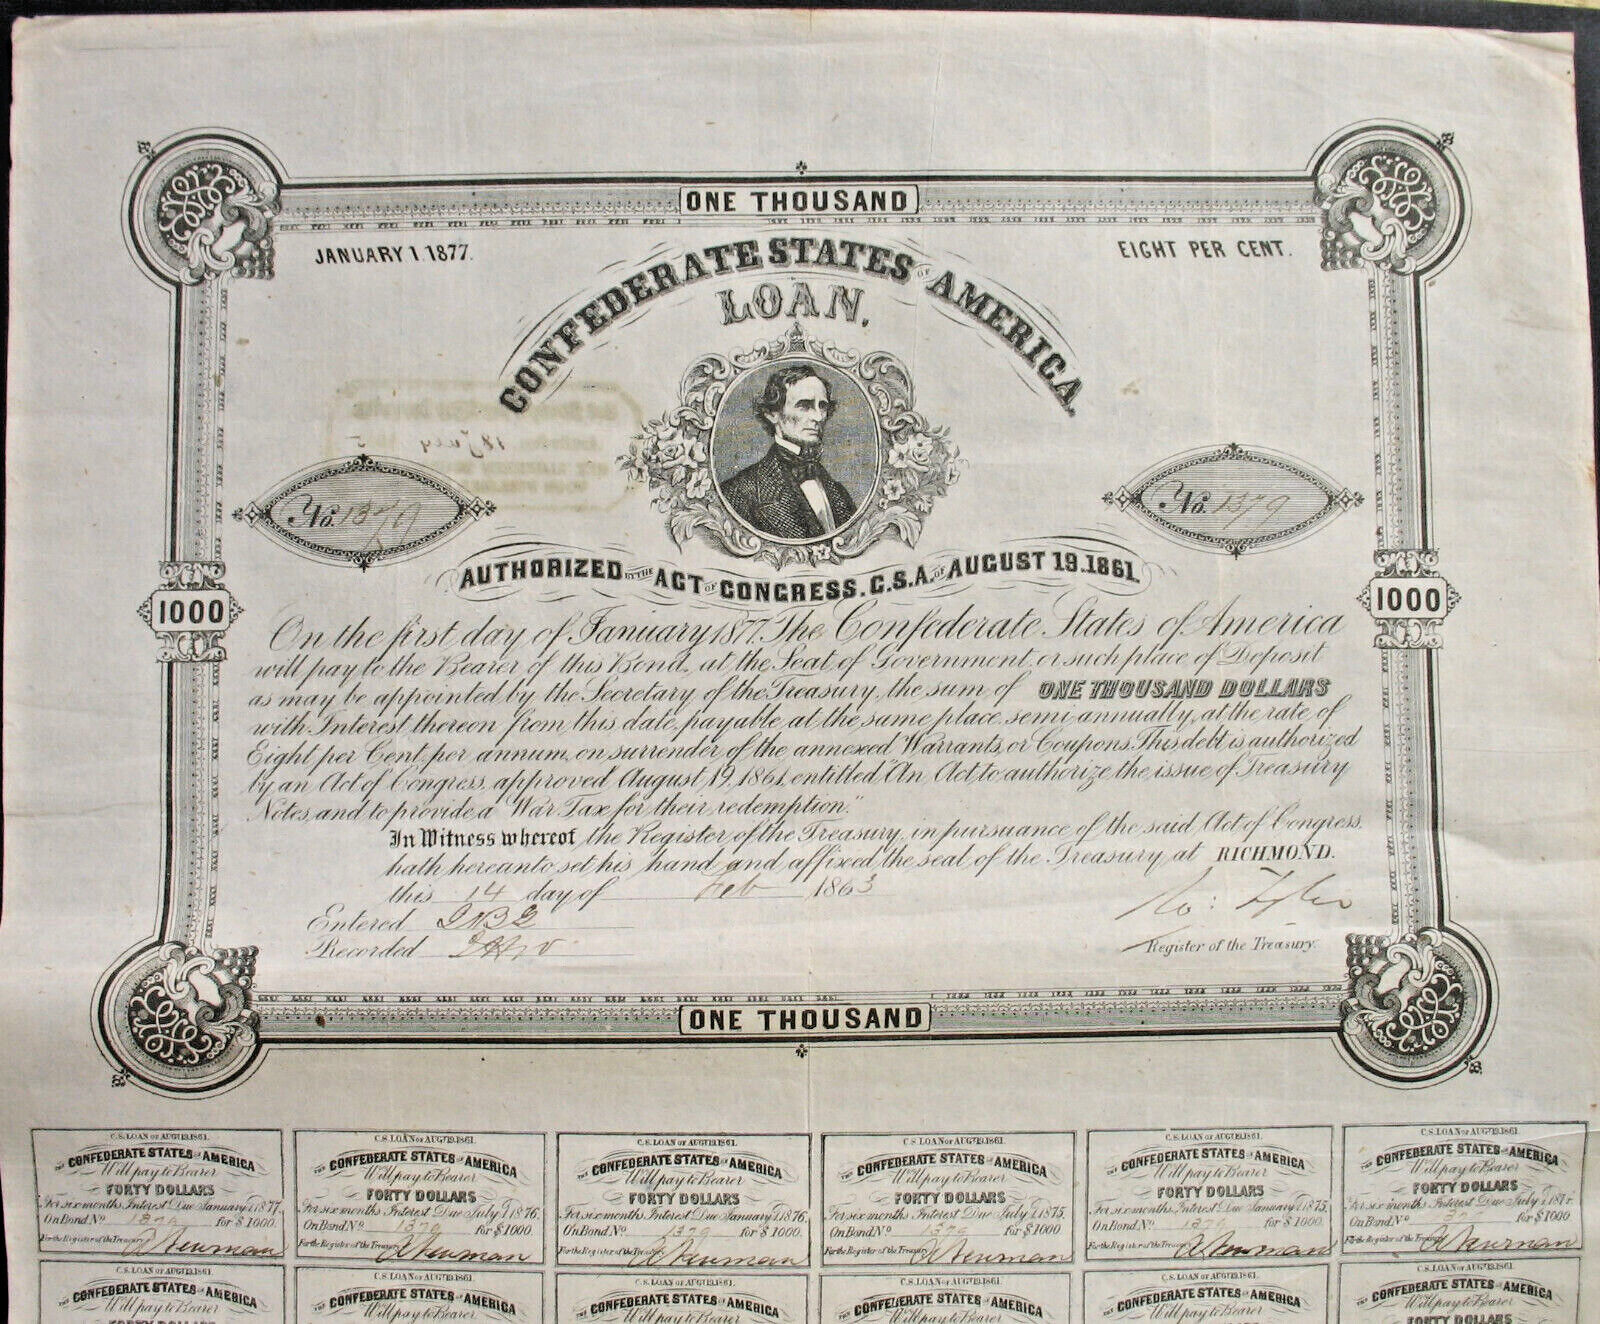 ONE THOUSAND
JANUARY 1. 1877.
EIGHT PER CENT.
CONFEDERATE STATES OF AMERICA
LOAN.
No. 1379
No. 1379
AUTHORIZED BY THE ACT OF CONGRESS. C.S.A. OF AUGUST 19. 1861.
1000
1000
On the first day of January 1877. The Confederate States of America
will pay to the Bearer of this Bond, at the Seat of Government or such place of Deposit
as may be appointed by the Secretary of the Treasury, the sum of ONE THOUSAND DOLLARS
with Interest thereon from this date, payable at the same place semi annually, at the rate of
Eight per Cent. per annum, on surrender of the annexed Warrants, or Coupons. This debt is authorized
by an Act of Congress, approved August, 19, 1861, entitled "An Act, to authorize the issue of Treasury
Notes, and to provide a War Tax for their redemption."
In Witness whereof the Register of the Treasury, in pursuance of the said Act of Congress,
hath hereunto set his hand and affixed the seal of the Treasury at RICHMOND.
this 14 day of Feb 1863
Entered
Recorded
Ro: Tyler
Register of the Treasury.
ONE THOUSAND
C.S. LOAN OF AUGT 19.1861.
THE CONFEDERATE STATES OF AMERICA
Will pay to Bearer
FORTY DOLLARS
For six months Interest Due January 1, 1877.
On Bond No 1379 for $1000.
For the Register of the Treasury A Newman
C.S. LOAN OF AUGT 19.1861.
THE CONFEDERATE STATES OF AMERICA
Will pay to Bearer
FORTY DOLLARS
For six months Interest Due July 1, 1876.
On Bond No 1379 for $1000.
For the Register of the Treasury A Newman
C.S. LOAN OF AUGT 19.1861.
THE CONFEDERATE STATES OF AMERICA
Will pay to Bearer
FORTY DOLLARS
For six months Interest Due January 1, 1876.
On Bond No 1379 for $1000.
For the Register of the Treasury A Newman
C.S. LOAN OF AUGT 19.1861.
THE CONFEDERATE STATES OF AMERICA
Will pay to Bearer
FORTY DOLLARS
For six months Interest Due July 1, 1875.
On Bond No 1379 for $1000.
For the Register of the Treasury A Newman
C.S. LOAN OF AUGT 19.1861.
THE CONFEDERATE STATES OF AMERICA
Will pay to Bearer
FORTY DOLLARS
For six months Interest Due January 1, 1875.
On Bond No 1379 for $1000.
For the Register of the Treasury A Newman
C.S. LOAN OF AUGT 19.1861.
THE CONFEDERATE STATES OF AMERICA
Will pay to Bearer
FORTY DOLLARS
For six months Interest Due July 1,
On Bond No for $1000
For the Register of the Treasury A Newman
C.S. LOAN OF AUGT 19.1861.
THE CONFEDERATE STATES OF AMERICA
Will pay to Bearer
FORTY DOLLARS
C.S. LOAN OF AUGT 19.1861.
THE CONFEDERATE STATES OF AMERICA
Will pay to Bearer
C.S. LOAN OF AUGT 19.1861.
THE CONFEDERATE STATES OF AMERICA
Will pay to Bearer
C.S. LOAN OF AUGT 19.1861.
THE CONFEDERATE STATES OF AMERICA
Will pay to Bearer
C.S. LOAN OF AUGT 19.1861.
THE CONFEDERATE STATES OF AMERICA
Will pay to Bearer
C.S. LOAN OF AUGT 19.1861.
THE CONFEDERATE STATES OF AMERICA
Will pay to Bearer
FORTY DOLLARS